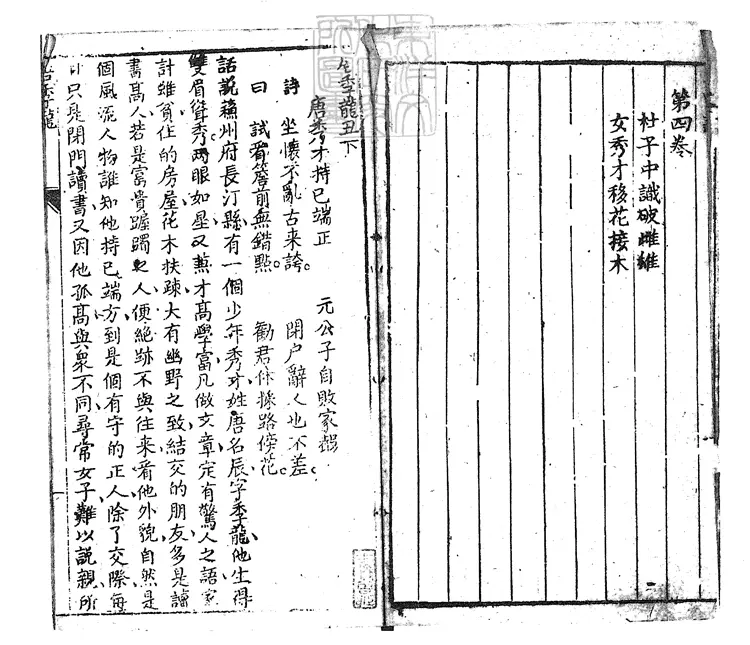 第四卷
杜子中識破雌雄
女秀才移花接木
季龍丑下
唐秀才持已端正　元公子自敗家
詩　坐懷不亂古来誇。　閉户辭人也不差。
曰　試看簷前無錯點。　勸君休採路傍花
話説蘓州府長汀縣有一個少年秀才姓唐名辰字季龍他生得
雙眉聳秀兩眼如星又兼才高學富凡做文章定有驚人之語家
計雖貧住的房屋花木扶踈大有幽野之致結交的朋友多是讀
書高人若是富貴齷齪之人便絶跡不與往来看他外貌自然是
個風流人物誰知他持已端方到是個有守的正人除了交際每
日只是閉門讀書又因他孤高與衆不同尋常女子難以説親所